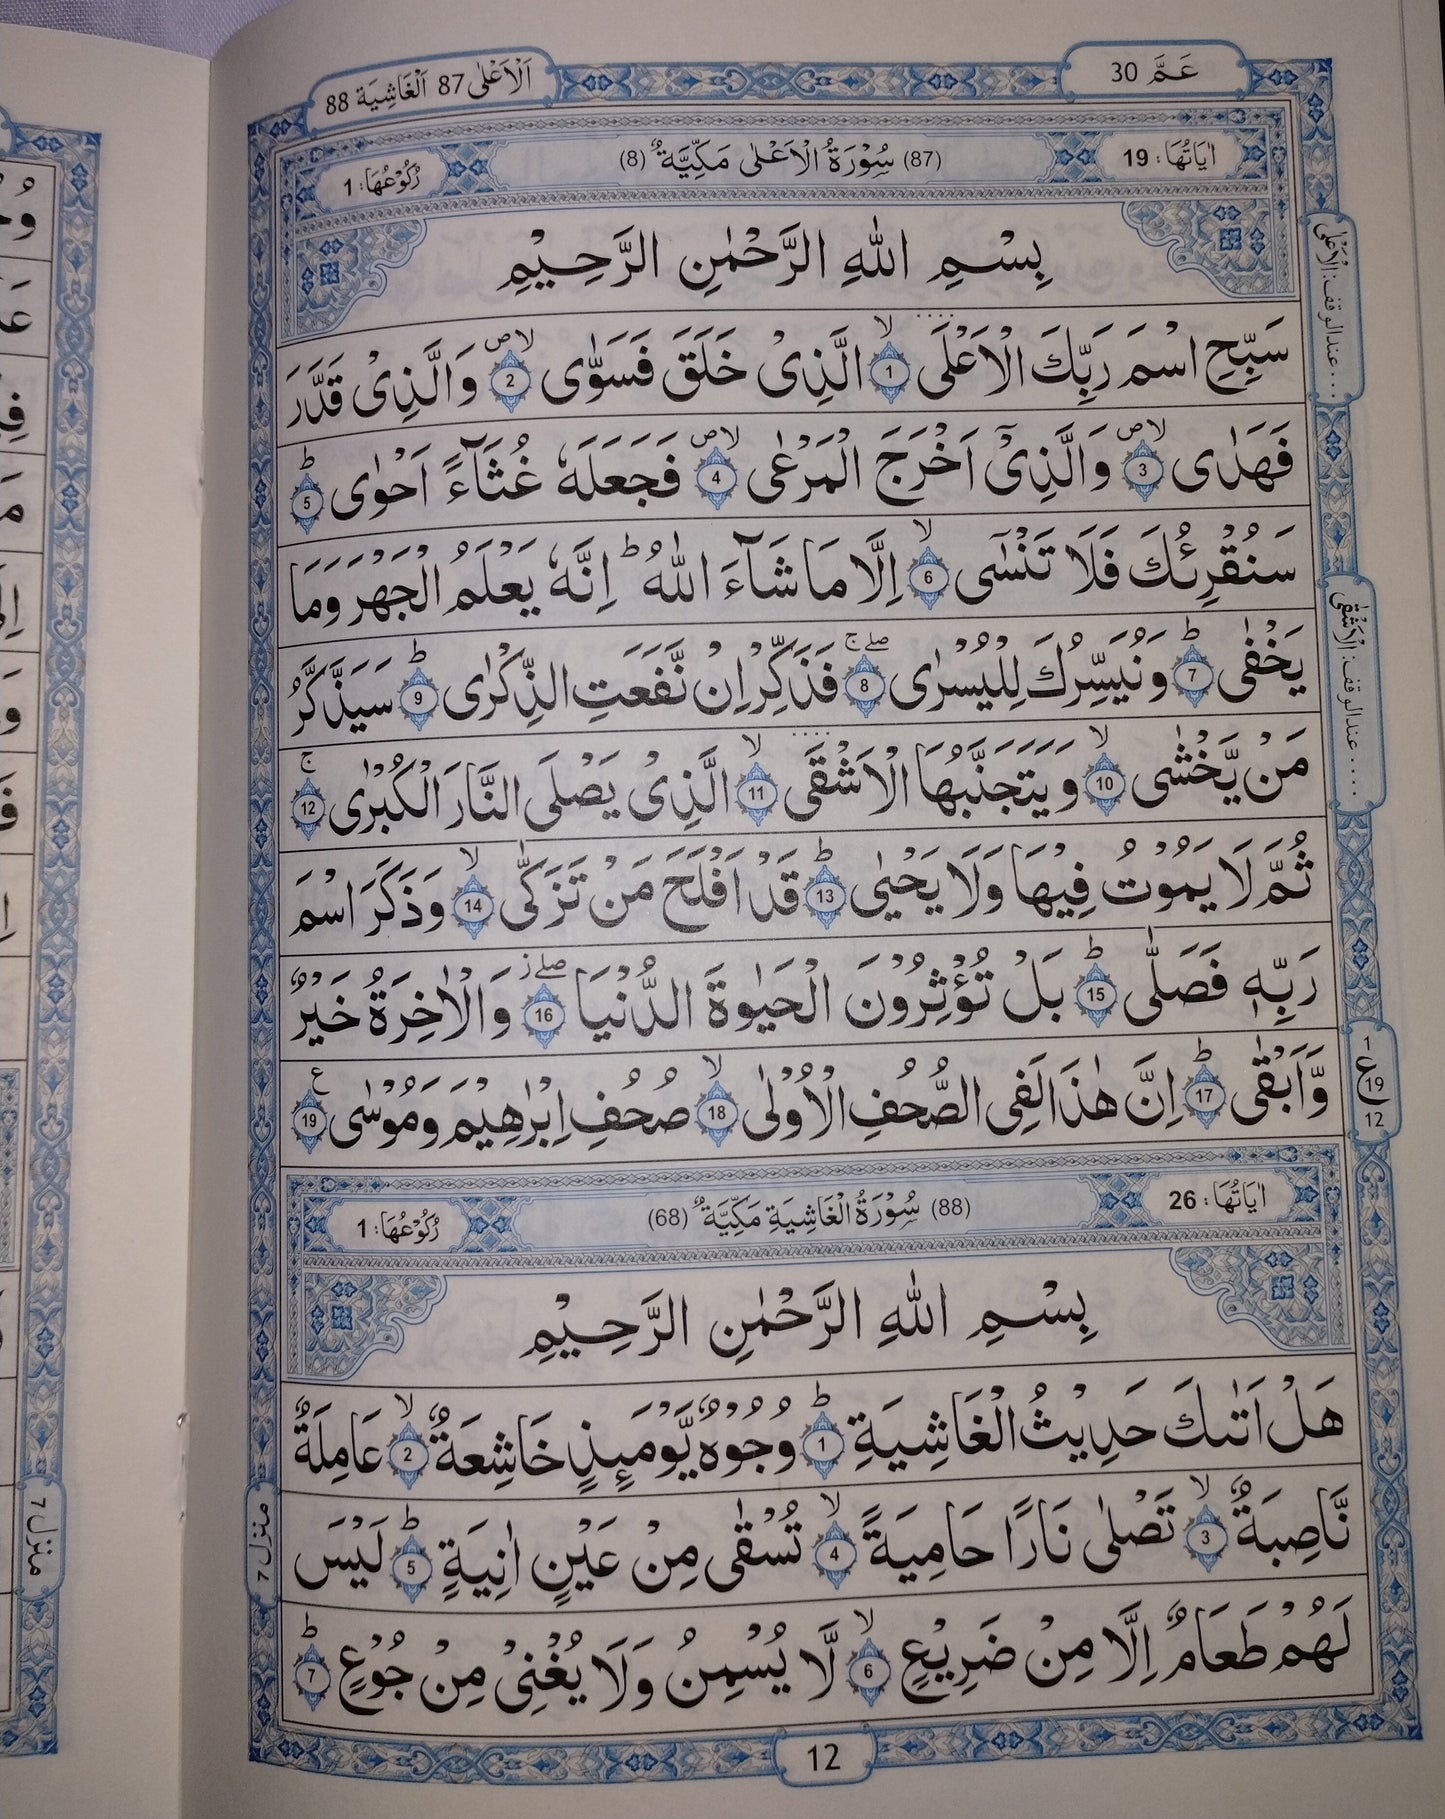 اَلْاَعْلٰى 87 اَلْغَاشِيَة 88
عَمَّ 30
اٰيَاتُهَا: 19
(87) سُوْرَةُ الْاَعْلٰى مَكِّيَّةٌ (8)
رُكُوْعُهَا: 1
بِسْمِ اللّٰهِ الرَّحْمٰنِ الرَّحِيْمِ
سَبِّحِ اسْمَ رَبِّكَ الْاَعْلَى ۙ 1 الَّذِىْ خَلَقَ فَسَوّٰى ۙص 2 وَالَّذِىْ قَدَّرَ
فَهَدٰى ۙص 3 وَالَّذِىْۤ اَخْرَجَ الْمَرْعٰى ۙص 4 فَجَعَلَهٗ غُثَآءً اَحْوٰى ؕ 5
سَنُقْرِئُكَ فَلَا تَنْسٰٓى ۙ 6 اِلَّا مَا شَآءَ اللّٰهُ ؕ اِنَّهٗ يَعْلَمُ الْجَهْرَ وَمَا
يَخْفٰى ؕ 7 وَنُيَسِّرُكَ لِلْيُسْرٰى ۖۚ 8 فَذَكِّرْ اِنْ نَّفَعَتِ الذِّكْرٰى ؕ 9 سَيَذَّكَّرُ
مَنْ يَّخْشٰى ۙ 10 وَيَتَجَنَّبُهَا الْاَشْقَى ۙ 11 الَّذِىْ يَصْلَى النَّارَ الْكُبْرٰى ۚ 12
ثُمَّ لَا يَمُوْتُ فِيْهَا وَلَا يَحْيٰى ؕ 13 قَدْ اَفْلَحَ مَنْ تَزَكّٰى ۙ 14 وَذَكَرَ اسْمَ
رَبِّهٖ فَصَلّٰى ؕ 15 بَلْ تُؤْثِرُوْنَ الْحَيٰوةَ الدُّنْيَا ۖز 16 وَالْاٰخِرَةُ خَيْرٌ
وَّاَبْقٰى ؕ 17 اِنَّ هٰذَا لَفِى الصُّحُفِ الْاُوْلٰى ۙ 18 صُحُفِ اِبْرٰهِيْمَ وَمُوْسٰى ع 19
اٰيَاتُهَا: 26
(88) سُوْرَةُ الْغَاشِيَةِ مَكِّيَّةٌ (68)
رُكُوْعُهَا: 1
بِسْمِ اللّٰهِ الرَّحْمٰنِ الرَّحِيْمِ
هَلْ اَتٰىكَ حَدِيْثُ الْغَاشِيَةِ ؕ 1 وُجُوْهٌ يَّوْمَئِذٍ خَاشِعَةٌ ۙ 2 عَامِلَةٌ
نَّاصِبَةٌ ۙ 3 تَصْلٰى نَارًا حَامِيَةً ۙ 4 تُسْقٰى مِنْ عَيْنٍ اٰنِيَةٍ ؕ 5 لَيْسَ
لَهُمْ طَعَامٌ اِلَّا مِنْ ضَرِيْعٍ ۙ 6 لَّا يُسْمِنُ وَلَا يُغْنِىْ مِنْ جُوْعٍ ؕ 7
عند الوقف: الْاَعْلٰى
عند الوقف: الْاَشْقٰى
1
ع 19
12
منزل 7
12
منزل 7